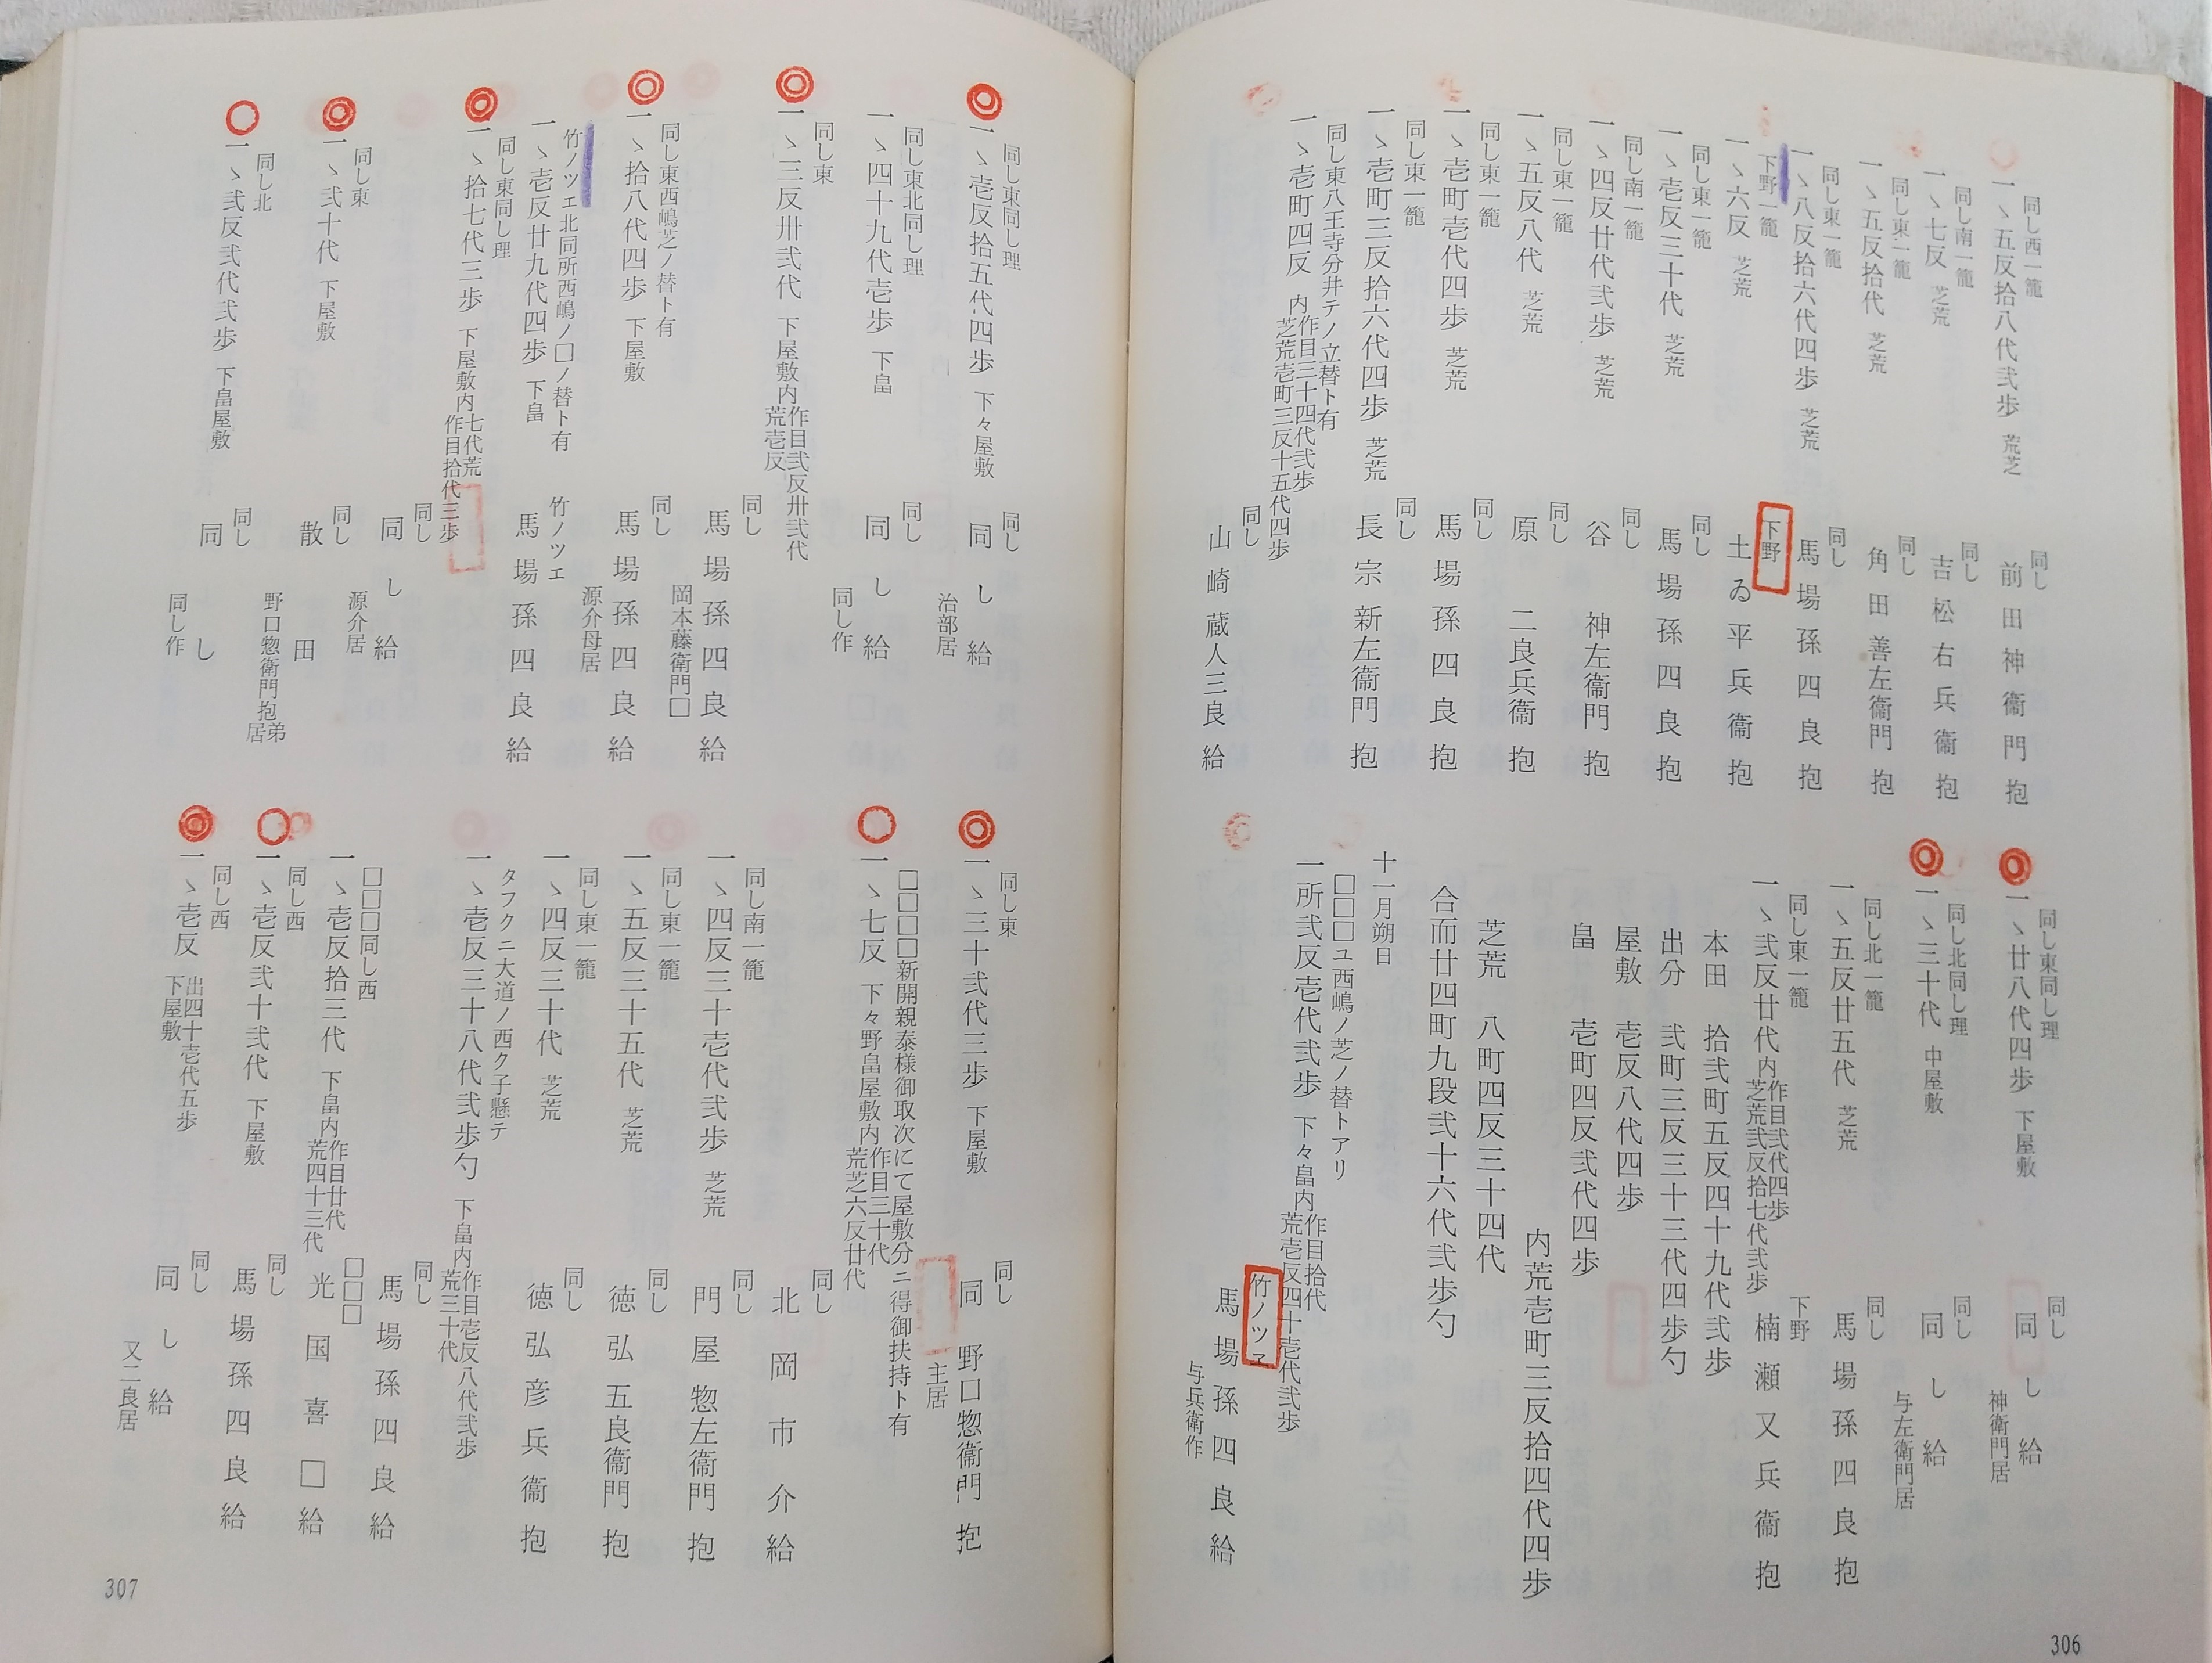 同し西一籠
一ヽ五反拾八代弐歩 荒芝
同し
前田神衛門抱
同し南一籠
一ヽ七反 芝荒
同し
吉松右兵衛抱
同し東一籠
一ヽ五反拾代 芝荒
同し
角田善左衛門抱
同し東一籠
一ヽ八反拾六代四歩 芝荒
同し
馬場孫四良抱
下野一籠
一ヽ六反 芝荒
下野
土ゐ平兵衛抱
同し東一籠
一ヽ壱反三十代 芝荒
同し
馬場孫四良抱
同し南一籠
一ヽ四反廿代弐歩 芝荒
同し
谷 神左衛門抱
同し東一籠
一ヽ五反八代 芝荒
同し
原 二良兵衛抱
同し東一籠
一ヽ壱町壱代四歩 芝荒
同し
馬場孫四良抱
同し東一籠
一ヽ壱町三反拾六代四歩 芝荒
同し
長宗新左衛門抱
同し東八王寺分井テノ立替ト有
一ヽ壱町四反 内 作目三十四代弐歩
芝荒壱町三反十五代四歩
同し
山崎蔵人三良給
同し東同し理
一ヽ廿八代四歩 下屋敷
同し
同し給
神衛門居
同し北同し理
一ヽ三十代 中屋敷
同し
同し給
与左衛門居
同し北一籠
一ヽ五反廿五代 芝荒
同し
馬場孫四良抱
同し東一籠
一ヽ弐反廿代内 作目弐代四歩
芝荒弐反拾七代弐歩
下野
楠瀬又兵衛抱
本田 拾弐町五反四十九代弐歩
出分 弐町三反三十三代四歩勺
屋敷 壱反八代四歩
畠 壱町四反弐代四歩
内荒壱町三反拾四代四歩
芝荒 八町四反三十四代
合而廿四町九段弐十六代弐歩勺
十一月朔日
□□□ユ西嶋ノ芝ノ替トアリ
一所弐反壱代弐歩 下々畠内 作目拾代
荒壱反四十壱代弐歩
竹ノツヱ
馬場孫四良給
与兵衛作
306
同し東同し理
一ヽ壱反拾五代四歩 下々屋敷
同し
同し給
治部居
同し東北同し理
一ヽ四十九代壱歩 下畠
同し
同し給
同し作
同し東
一ヽ三反卅弐代 下屋敷内 作目弐反卅弐代
荒壱反
同し
馬場孫四良給
岡本藤衛門□
同し東西嶋芝ノ替ト有
一ヽ拾八代四歩 下屋敷
同し
馬場孫四良給
源介母居
竹ノツエ北同所西嶋ノ□ノ替ト有
一ヽ壱反廿九代四歩 下畠
竹ノツエ
馬場孫四良給
同し東同し理
一ヽ拾七代三歩 下屋敷内 七代荒
作目拾代三歩
同し
同し給
源介居
同し東
一ヽ弐十代 下屋敷
同し
散田
野口惣衛門抱弟
居
同し北
一ヽ弐反弐代弐歩 下畠屋敷
同し
同し
同し作
同し東
一ヽ三十弐代三歩 下屋敷
同し
同 野口惣衛門抱
主居
□□□□新開親泰様御取次にて屋敷分ニ得御扶持ト有
一ヽ七反 下々野畠屋敷内 作目三十代
荒芝六反廿代
同し
北岡市介給
同し南一籠
一ヽ四反三十壱代弐歩 芝荒
同し
門屋惣左衛門抱
同し東一籠
一ヽ五反三十五代 芝荒
同し
徳弘五良衛門抱
同し東一籠
一ヽ四反三十代 芝荒
同し
徳弘彦兵衛抱
タフクニ大道ノ西ク子懸テ
一ヽ壱反三十八代弐歩勺 下畠内 作目壱反八代弐歩
荒三十代
同し
馬場孫四良給
□□□同し西
一ヽ壱反拾三代 下畠内 作目廿代
荒四十三代
□□□
光国喜□給
同し西
一ヽ壱反弐十弐代 下屋敷
同し
馬場孫四良給
同し西
一ヽ壱反 出四十壱代五歩
下屋敷
同し
同し給
又二良居
307